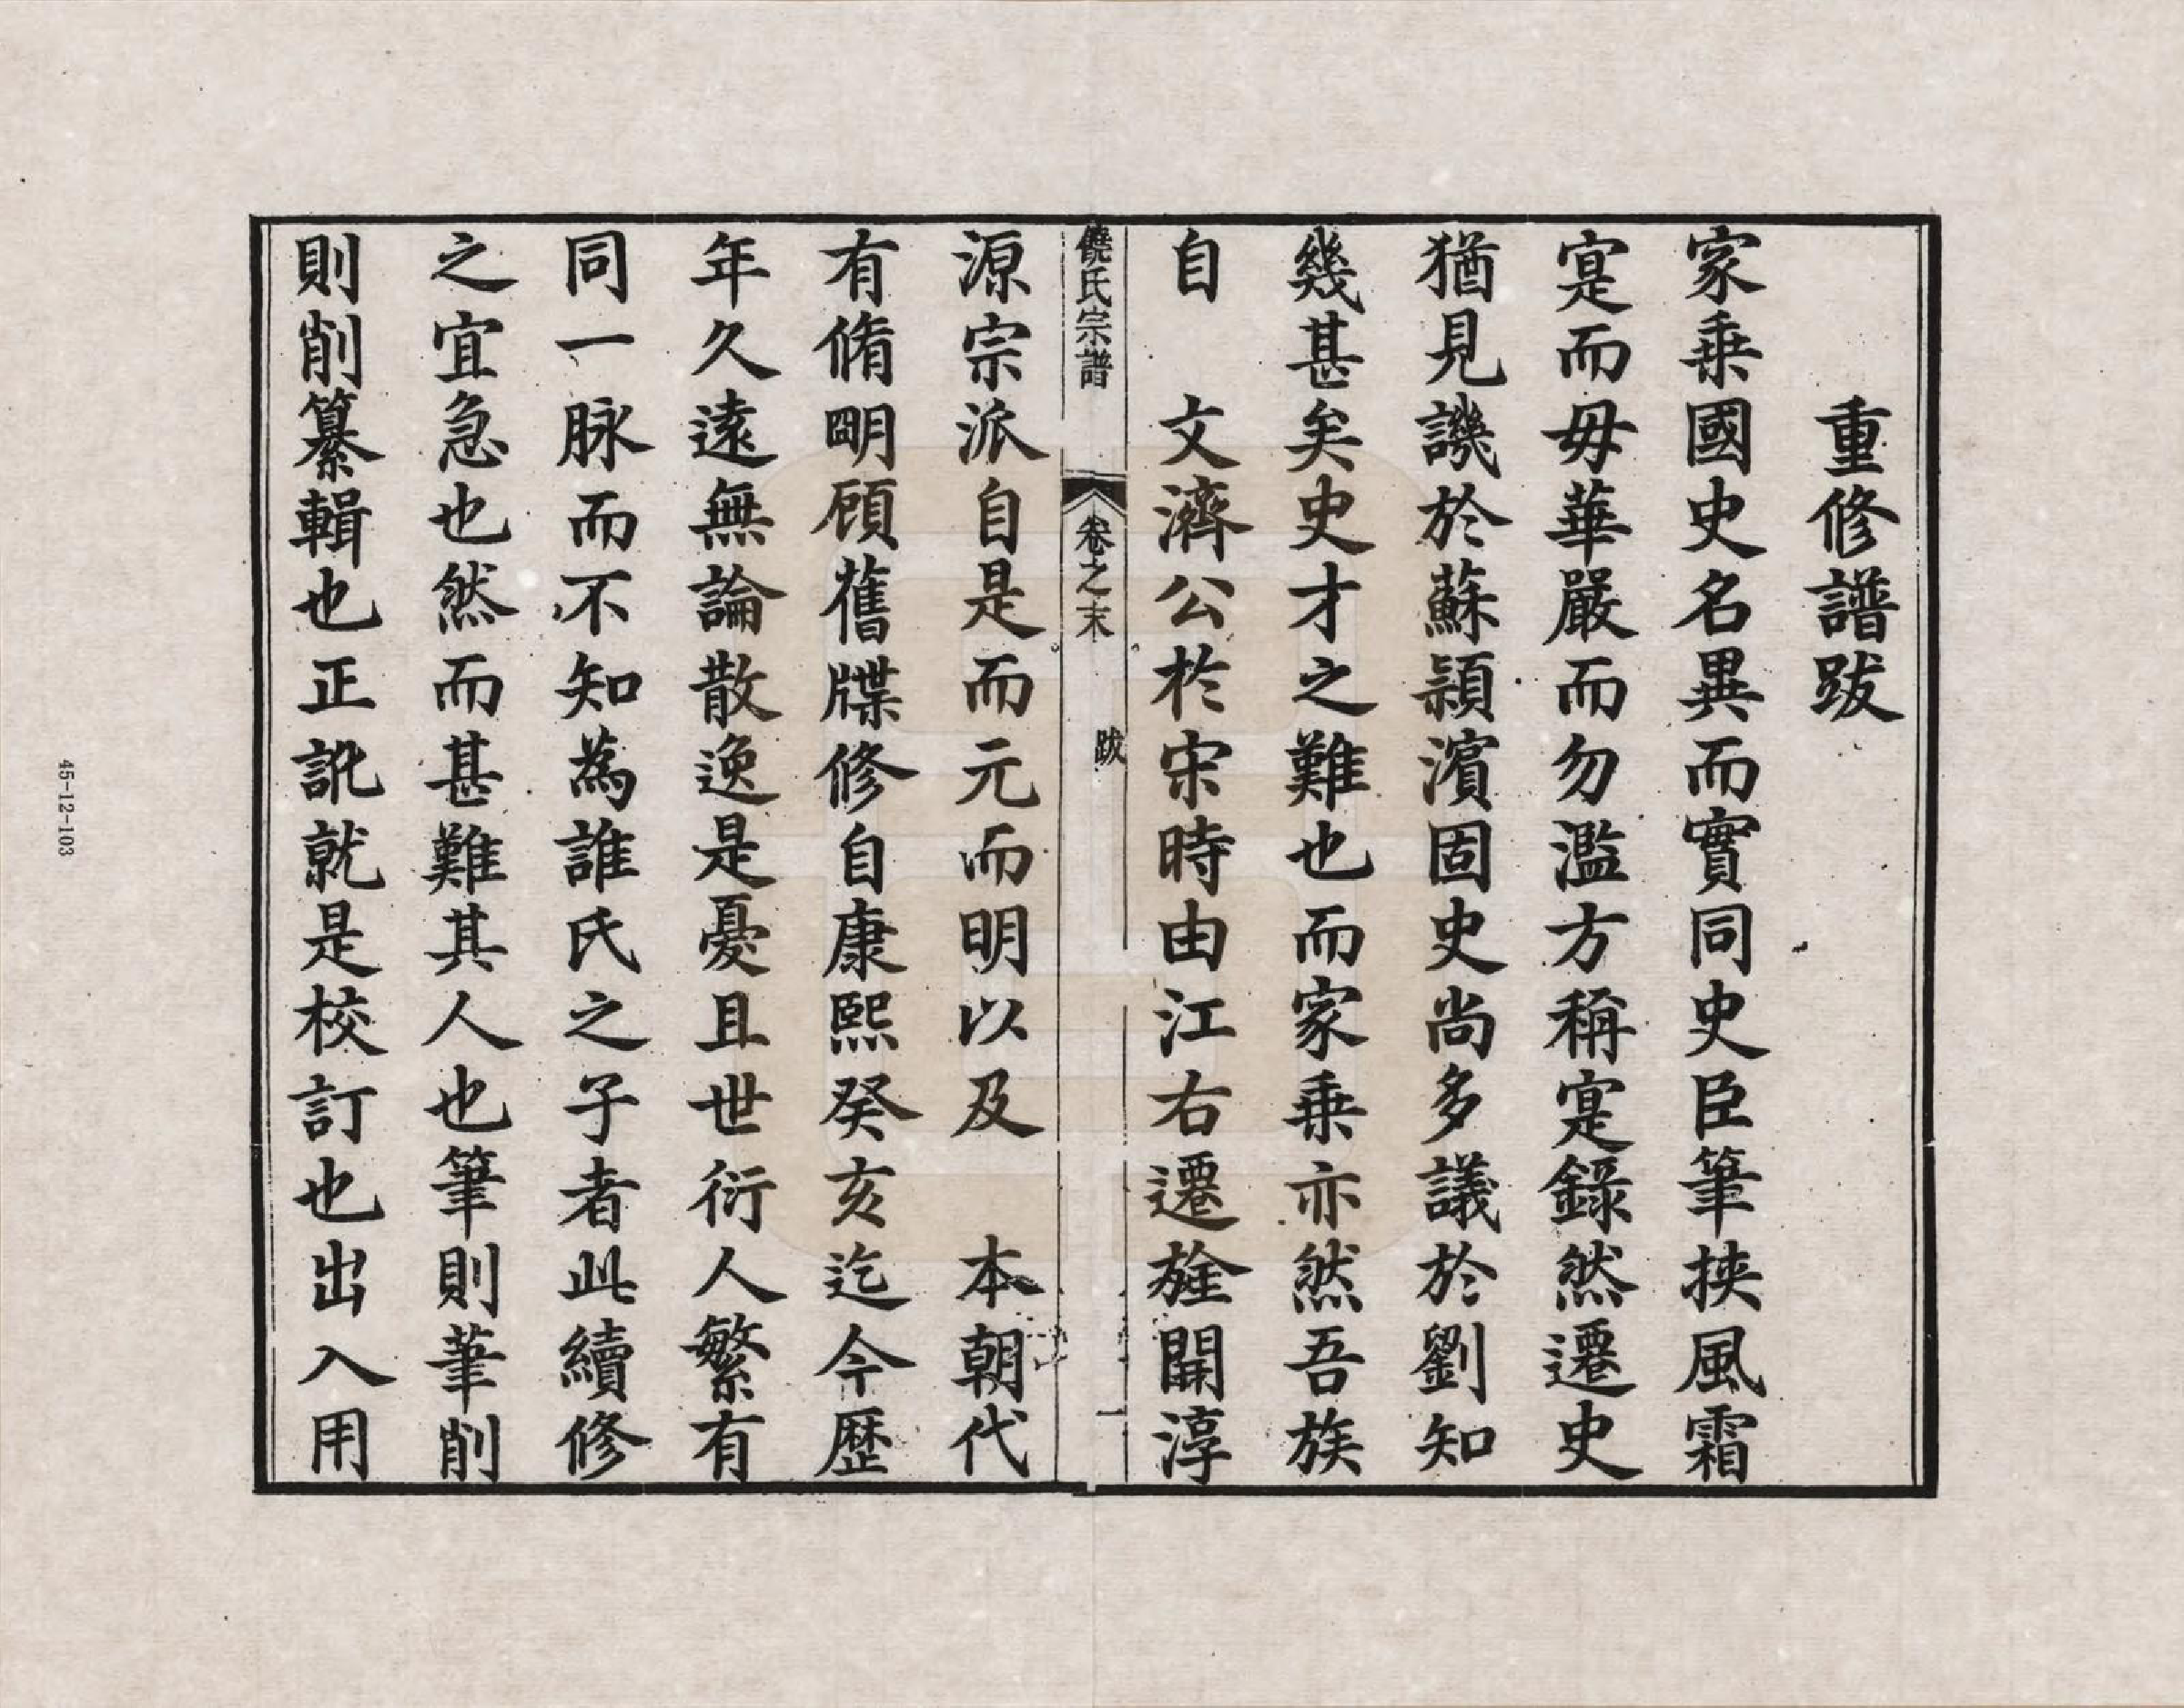 重修譜跋
家乗國史名異而實同史臣筆挾風霜
寔而毋華嚴而勿濫方稱寔錄然遷史
猶見譏於蘇潁濱固史尚多議於劉知
幾甚矣史才之難也而家乗亦然吾族
自 文濟公於宋時由江右遷旌開淳
饒氏宗譜 卷之末 跋 一
源宗派自是而元而明以及 本朝代
有脩明顧舊牒修自康熙癸亥迄今歷
年久遠無論散逸是憂且世衍人繁有
同一脉而不知為誰氏之子者此續修
之宜急也然而甚難其人也筆則筆削
則削纂輯也正訛就是校訂也出入用
45-12-103